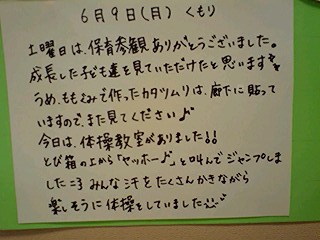 6月9日(月) くもり
土曜日は、保育参観ありがとうございました。
成長した子ども達を見ていただけたと思います
うめ、ももぐみで作ったカタツムリは、廊下に貼って
いますので、また見てください♪
今日は、体操教室がありました!!
とび箱の上から「ヤッホー♪」と叫んでジャンプしま
した みんな汗をたくさんかきながら
楽しそうに体操をしていました